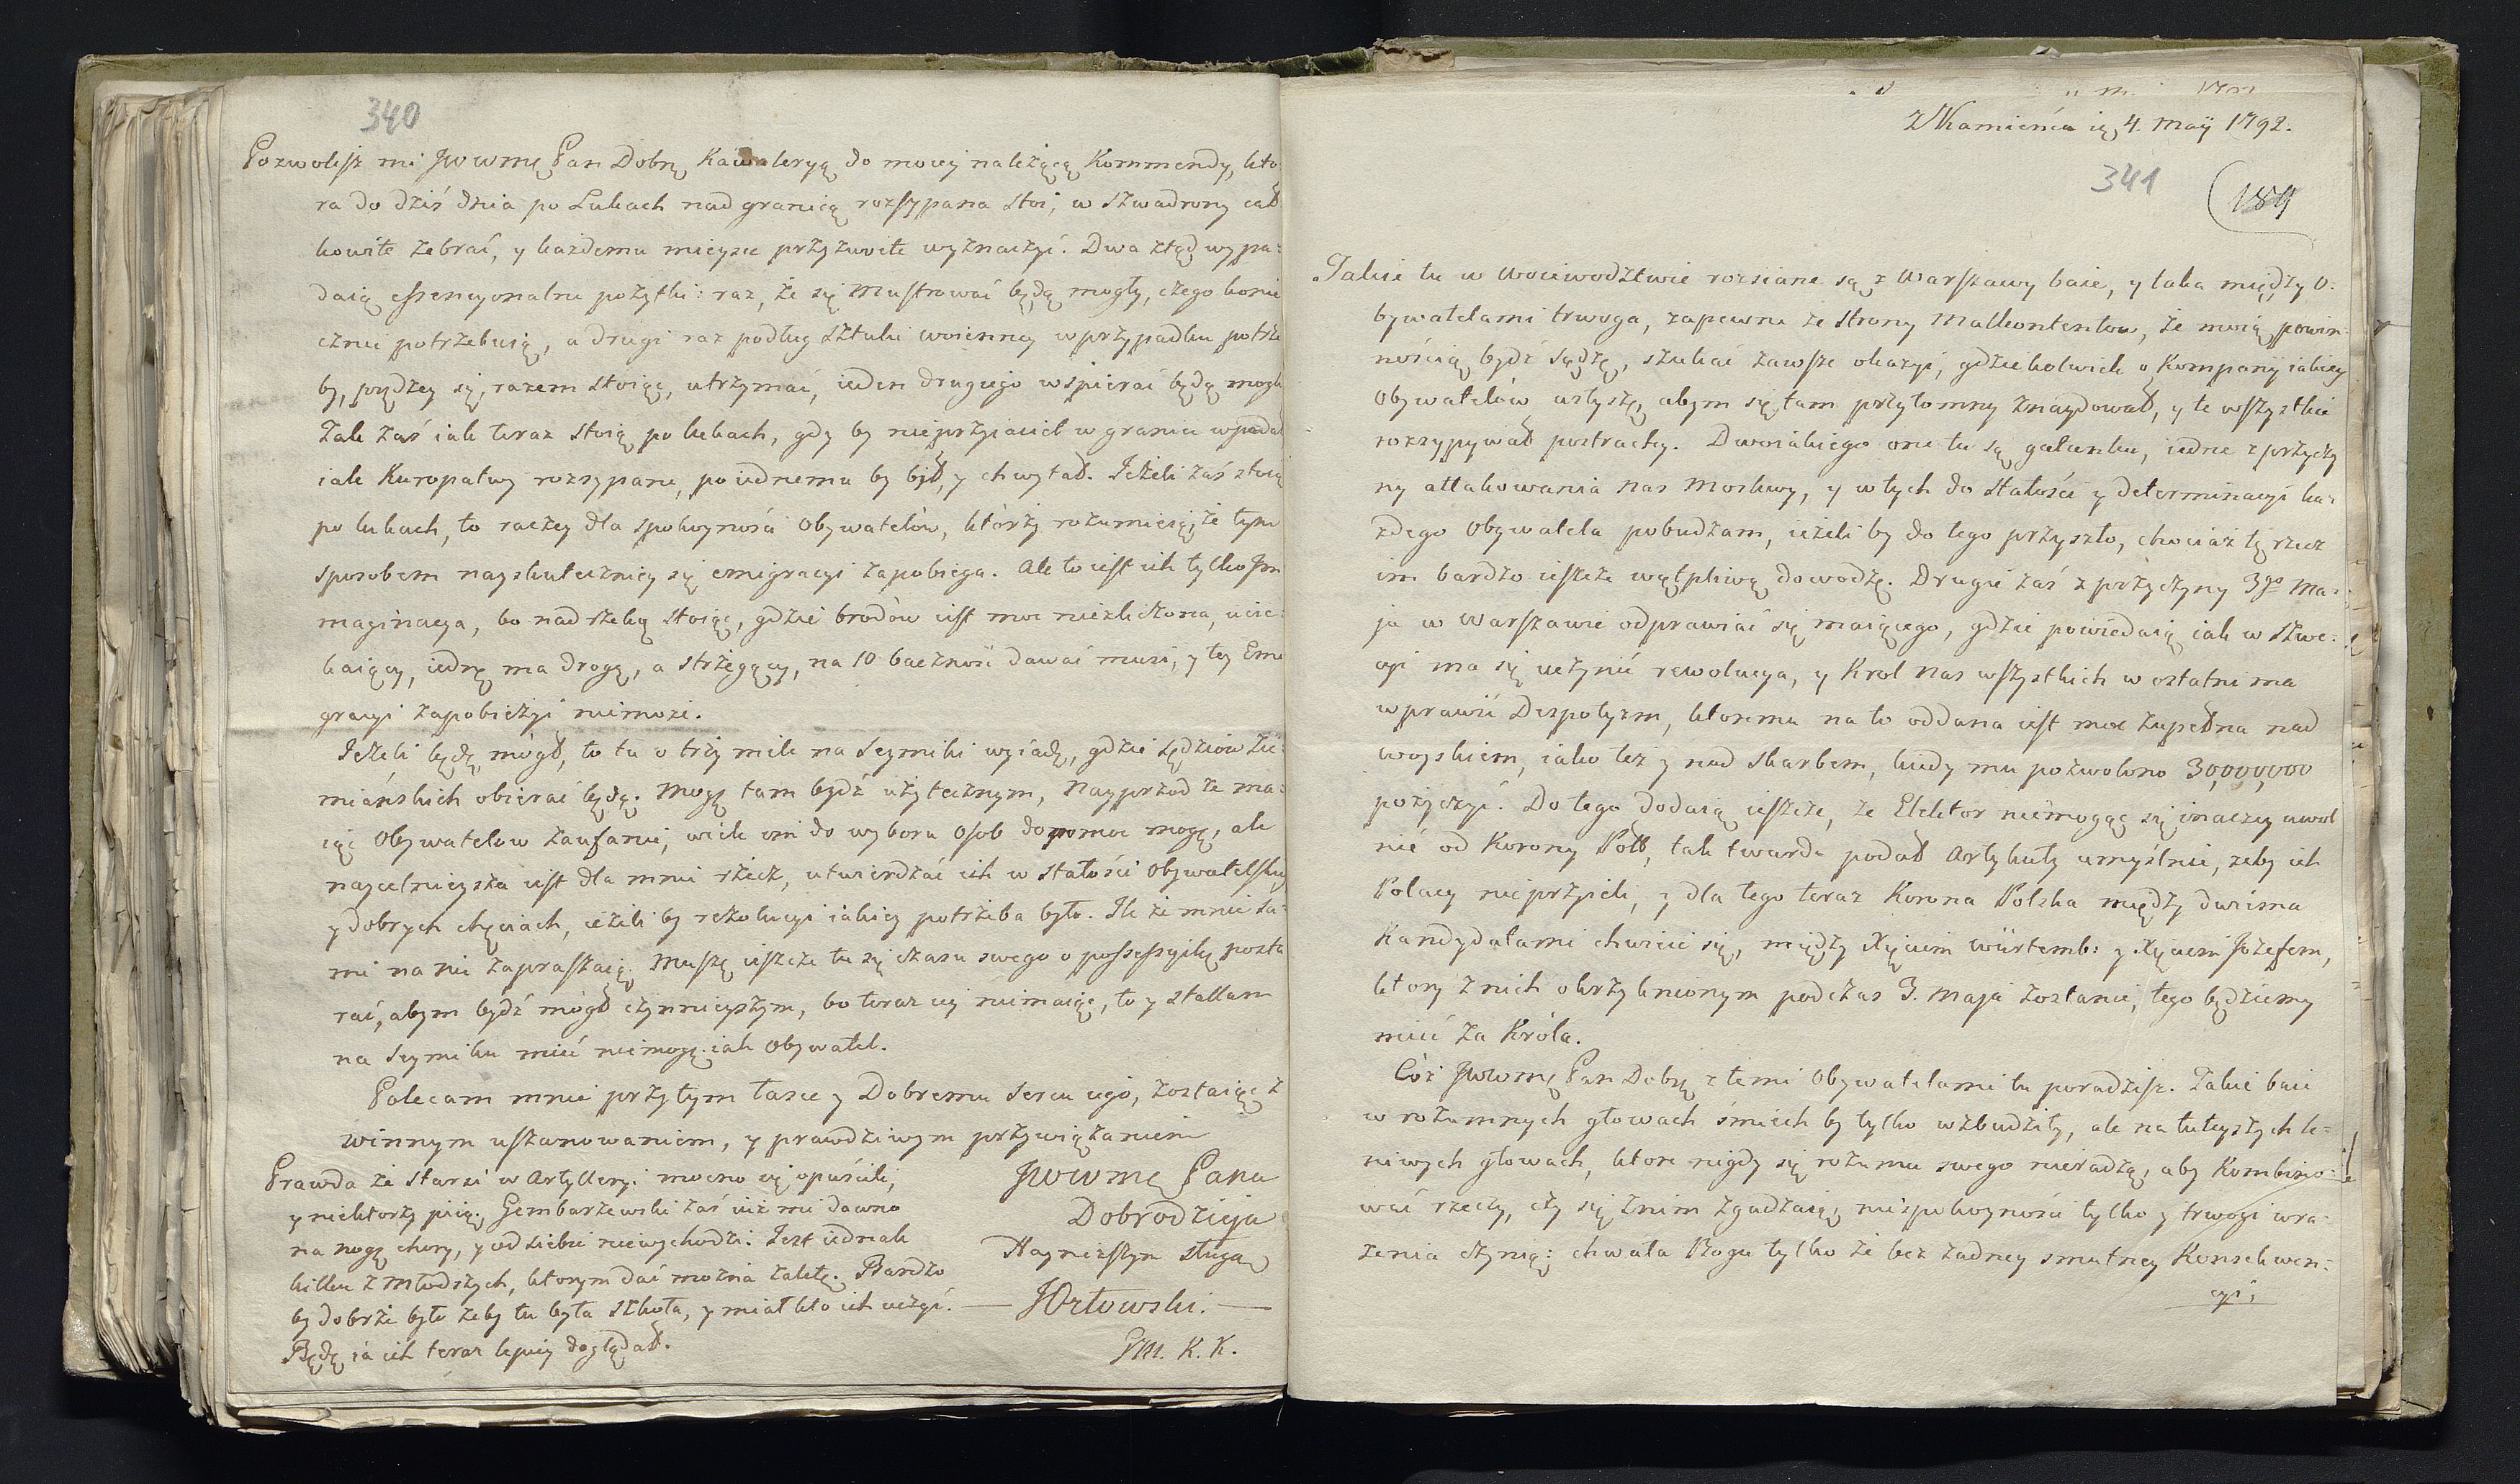 340
Pozwolisz mi JWWMę Pan Dobrę Kawaleryą do mowey należącą Kommendy, kto
ra do dziś dnia po Lukach nad granicą rozsypana stoi, w szwadrony cał
kowite zebrać, y każdemu mieysce przyzwoite wyznaczyć. Dwa ztąd wypa:
daią essencyonalne pożytki: raz, że się mustrować będą mogły, czego konie
cznie potrzebuią, a drugi raz podług sztuki woienney w przypadku potrze
by, prędzey się, razem stoiąc, utrzymać, ieden drugiego wspierać będą mogli
Tak zaś iak teraz stoią po lukach, gdy by nieprzyiaciel w granice wpadał
iak Kuropatwy rozsypane, po iednemu by bił, y chwytał. Jeżeli zaś stoią
po lukach, to raczey dla spokoyności Obywatelów, którzy rozumieią, że tym
sposobem nayskuteczniey się emigracyi zapobiega. Ale to iest ich tylko Im
maginacya, bo nad rzeką stoiąc, gdzie brodów iest moc niezliczona, ucie:
kaiący, iedną ma drogę, a strzegący, na 10 baczność dawać musi, y tey Emi
gracyi zapobieżyć niemoże.
Jeżeli będę mógł, to tu o trzy mile na Seymiki wyiadę, gdzie sędziów Zie:
miańskich obierać będą. Mogę tam bydź użytecznym, Nayprzod że ma:
iąc Obywatelow zaufanie, wiele im do wyboru Osob dopomoc mogę, ale
naycelnieysza iest dla mnie rzecz, utwierdzać ich w stałości Obywatelskiey
y dobrych chęciach, ieżeli by rezolucyi iakiey potrzeba było. Ile że mnie sa:
mi na nie zapraszaią. Muszę ieszcze tu się czasu swego o possessyikę posta
rać, abym bydź mógł czynnieyszym, bo teraz iey niemaiąc, to y stallum
na Seymiku mieć niemogę iak Obywatel.
Polecam mnie przytym łasce y Dobremu Sercu iego, zostaiąc z
winnym uszanowaniem, y prawdziwym przywiązaniem
JWWMę Pana
Dobrodzieja
Nayniższym sługą
JOrłowski.
GM. K. K.
Prawda że starsi w Artylleryi mocno się opuścili,
y niektorzy piią. Gembarzewski zaś iuż mi dawno
na nogę chory, y od siebie niewychodzi. Jest iednak
kilku z młodszych, ktorym dać można zaletę. Bardzo
by dobrze było żeby tu była szkoła, y miał kto ich uczyć.
Będę ia ich teraz lepiey doglądał.
Z Kamieńca ią 4. Maÿ 1792.
341
189
Takie tu w Woiewodztwie rozsiane są z Warszawy baie, y taka między O:
bywatelami trwoga, zapewne ze strony Malkontentow, że moią powin:
nością bydź sądzę, szukać zawsze okazyi, gdziekolwiek o Kompanij iakiey
Obywatelów usłyszę, abym się tam przytomny znaydował, y te wszystkie
rozsypywał postrachy. Dwoiakiego one tu są gatunku, iedne z przyczy
ny attakowania nas Moskwy, y w tych do stałości y determinacyi ka:
żdego Obywatela pobudzam, ieżeli by do tego przyszło, chociaż tę rzecz
im bardzo ieszcze wątpliwą dowodzę. Drugie zaś z przyczyny 3go Ma:
ja w Warszawie odprawiać się maiącego, gdzie powiedaią iak w Szwe:
cyi ma się uczynić rewolucya, y Krol nas wszystkich w ostatni ma
wprawić Despotyzm, ktoremu na to oddana iest moc zupełna nad
woyskiem, iako też y nad Skarbem, kiedy mu pozwolono 30,000,000
pożyczyć. Do tego dodaią ieszcze, że Elektor niemogąc się inaczey uwol
nić od Korony Pol, tak twarde podał Artykuły umyślnie, żeby ich
Polacy nieprzyieli, y dla tego teraz Korona Polska między dwiema
Kandydatami chwieie się, między Xięciem Würtemb: y Xięciem Jozefem,
ktory z nich okrzyknionym podczas 3. Maja zostanie, tego będziemy
mieć za Króla.
Cóż JWWMę Pan Dobrę z temi Obywatelami tu poradzisz. Takie baie
w rozumnych głowach śmiech by tylko wzbudziły, ale na tuteyszych le=
niwych głowach, ktore nigdy się rozumu swego nieradzą, aby Kombino:
wać rzeczy, czy się z nim zgadzaią, niespokoyności tylko y trwogi wra:
żenia czynią: chwała Bogu tylko że bez żadney smutney Konsekwen:
cyi;